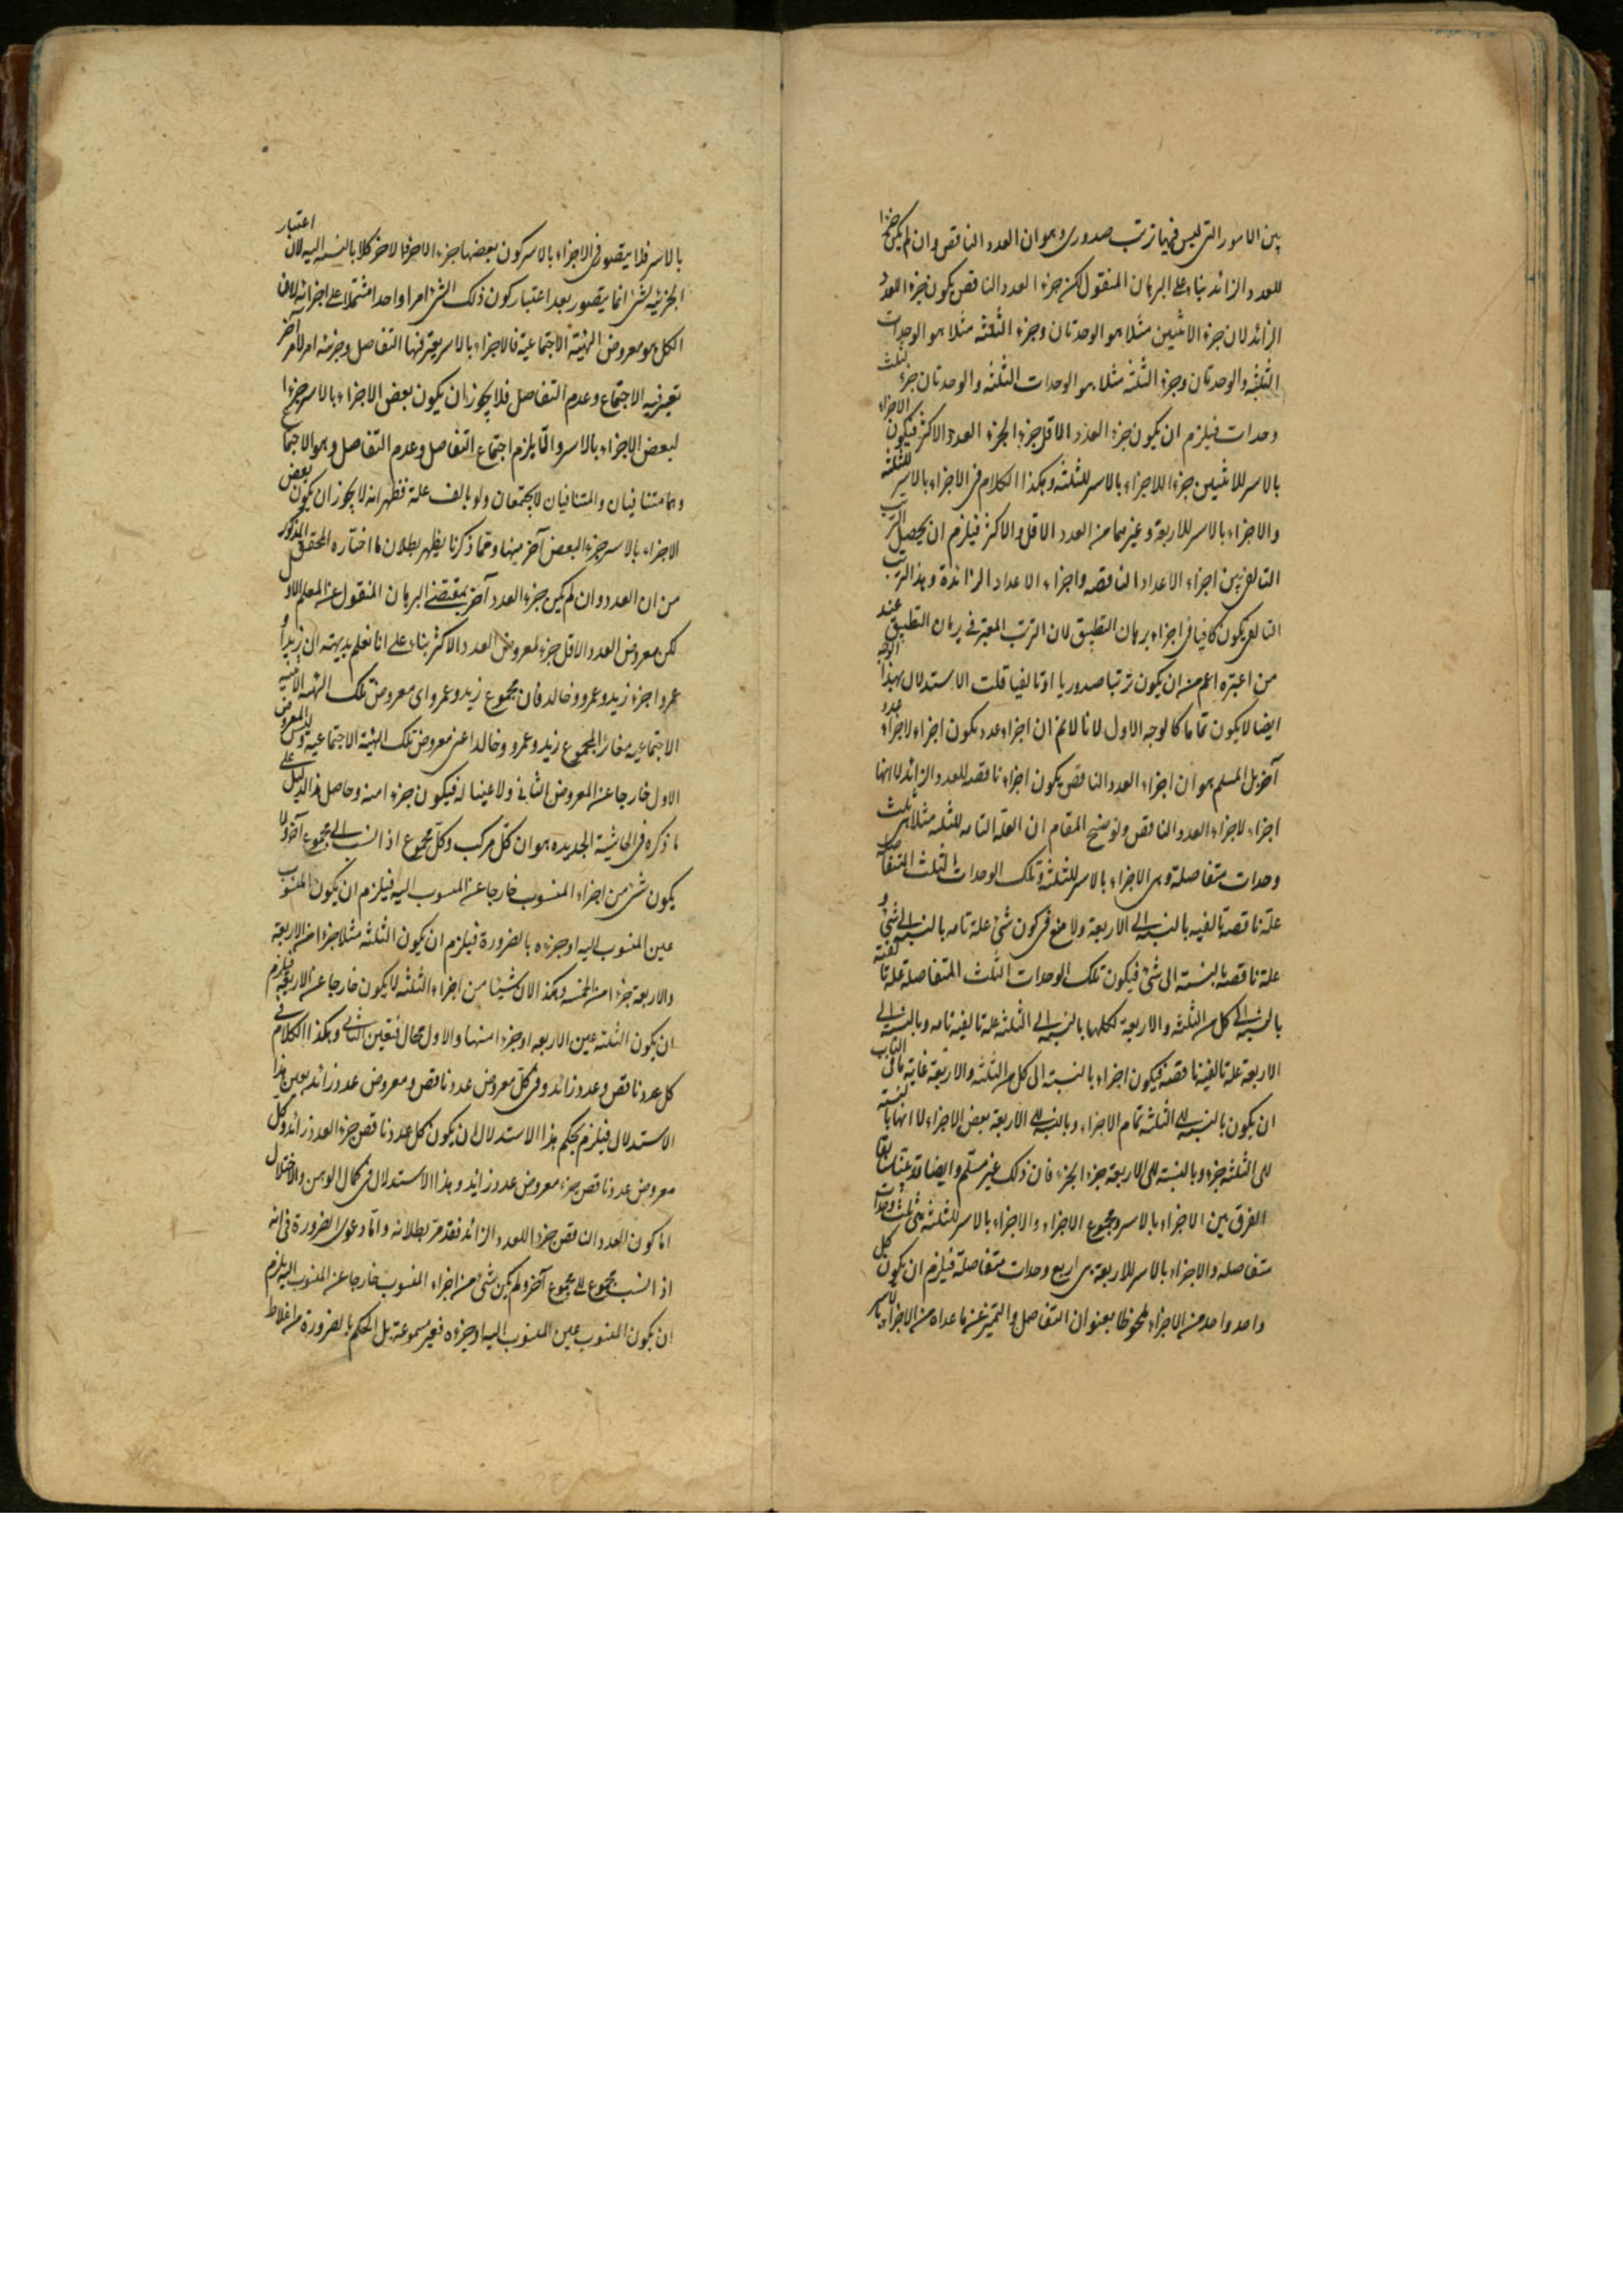 بين الامور التى ليس فيها ترتب صدورى وهو ان العدد الناقص وان لم يكن جزءا
للعدد الزائد بناء على البرهان المنقول لكن جزء العدد الناقص يكون جزء العدد
الزائد لان جزء الاثنين مثلا هو الوحدتان وجزء الثلثة مثلا هو الوحدات
الثلثة والوحدتان وجزء الثلثة مثلا هو الوحدات الثلثة والوحدتان جزء لثلث
وحدات فيلزم ان يكون جزء العدد الاقل جزء الجزء العدد الاكثر فيكون الاجزاء
بالاسر للاثنين جزء اللاجزاء بالاسر للثلثة وهكذا الكلام فى الاجزاء بالاسر للثلثة
والاجزاء بالاسر للاربعة وغيرهما من العدد الاقل والاكثر فيلزم ان يحصل الترتب
التالفى بين اجزاء الاعداد الناقصه واجزاء الاعداد الزائدة وهذا الترتب
التالفى يكون كافيا فى اجزاء برهان التطبيق لان الترتب المعتبر فى برهان التطبيق عند
من اعتبره اعم من ان يكون ترتبا صدوريا او تالفيا قلت الاستدلال بهذا الوجه
ايضا لا يكون تماما كالوجه الاول لانا لانم ان اجزاء عدد يكون اجزاء لاجزاء عدد
آخر بل المسلم هو ان اجزاء العدد الناقص يكون اجزاء ناقصه للعدد الزائد لا انها
اجزاء لاجزاء العدد الناقص وتوضيح المقام ان العلة التامه للثلثه مثلا هى ثلث
وحدات متفاصلة وهى الاجزاء بالاسر للثلثة وتلك الوحدات الثلث المتفاصلة
علة ناقصة تالفيه بالنسبة الى الاربعة ولا منع فى كون شئ علة تامه بالنسبة الى شئ و
علة ناقصة بالنسبة الى شئ فيكون تلك الوحدات الثلث المتفاصلة علة تالفية
بالنسبة الى كل من الثلثة والاربعة لكلها بالنسبة الى الثلثة علة تالفية تامه وبالنسبة الى
الاربعة علة تالفية ناقصة فيكون اجزاء بالنسبة الى كل من الثلثة والاربعة غاية ما فى الباب
ان يكون بالنسبة الى الثلثة تمام الاجزاء وبالنسبة الى الاربعة بعض الاجزاء لا انها بالنسبة
الى الثلثة جزء وبالنسبة الى الاربعة جزء الجزء فان ذلك غير مسلم وايضا قد عينا سابقا
الفرق بين الاجزاء بالاسر ومجموع الاجزاء والاجزاء بالاسر للثلثة هى ثلث وحدات
متفاصله والاجزاء بالاسر للاربعة هى اربع وحدات متفاصلة فيلزم ان يكون كل
واحد واحد من الاجزاء ملحوظا بعنوان التفاصل والتميز عن ما عداه من الاجزاء بالاسر
بالاسر فلا يتصور فى الاجزاء بالاسر كون بعضها جزء الاخر فالاخر كلا بالنسبة اليه لان اعتبار
الجزئيه لشئ انما يتصور بعد اعتبار كون ذلك الشئ امرا واحدا مشتملا على اجزائه لان
الكل هو معروض الهيئة الاجتماعية فالاجزاء بالاسر يعتبر فيها التفاصل وجزئية امر لامر آخر
تعتبر فيه الاجتماع وعدم التفاصل فلا يجوز ان يكون بعض الاجزاء بالاسر جزءا
لبعض الاجزاء بالاسر والا يلزم اجتماع التفاصل وعدم التفاصل وهو الاجتماع
وهما متنافيان والمتنافيان لا يجتمعان ولو بالف علة فظهر انه لا يجوز ان يكون بعض
الاجزاء بالاسر جزء البعض آخر منها ومما ذكرنا يظهر بطلان ما اختاره المحقق المذكور
من ان العدد وان لم يكن جزء العدد آخر بمقتضى البرهان المنقول عن المعلم الاول
لكن معروض العدد الاقل جزء لمعروض العدد الاكثر بناء على انا نعلم بديهة ان زيدا و
عمروا جزء زيد وعمرو وخالد فان مجموع زيد وعمرو اى معروض تلك الهيئة الاثنينية
الاجتماعيه مغاير المجموع زيد وعمرو وخالد اعنى معروض تلك الهيئة الاجتماعيه وليس المعروض
الاول خارجا عن المعروض الثانى ولا عينا له فيكون جزء امنه وحاصل هذا الدليل على
ما ذكره فى الحاشية الجديده هو ان كل مركب وكل مجموع اذا نسب الى مجموع آخر ولا
يكون شئ من اجزاء المنسوب خارجا عن المنسوب اليه فيلزم ان يكون المنسوب
عين المنسوب اليه او جزءه بالضرورة فيلزم ان يكون الثلثة مثلا جزءا من الاربعة
والاربعة جزءا من الخمسه وهكذا لان شيئا من اجزاء الثلثه لا يكون خارجا عن الاربعة فيلزم
ان يكون الثلثة عين الاربعه او جزءا منها والاول محال فتعين الثانى وهكذا الكلام فى
كل عدد ناقص وعدد زائد وفى كل معروض عدد ناقص ومعروض عدد زائد بعين هذا
الاستدلال فيلزم بحكم هذا الاستدلال ان يكون كل عدد ناقص جزء العدد زائد وكل
معروض عدد ناقص جزء معروض عدد زائد وهذا الاستدلال فى كمال الوهن والاختلال
اما كون العدد الناقص جزءا للعدد الزائد فقد مر بطلانه واما دعوى الضرورة فى انه
اذا نسب مجموع الى مجموع آخر ولم يكن شئ من اجزاء المنسوب خارجا عن المنسوب اليه يلزم
ان يكون المنسوب عين المنسوب اليه او جزءه فغير مسموعة بل الحكم بالضرورة من اغلاط